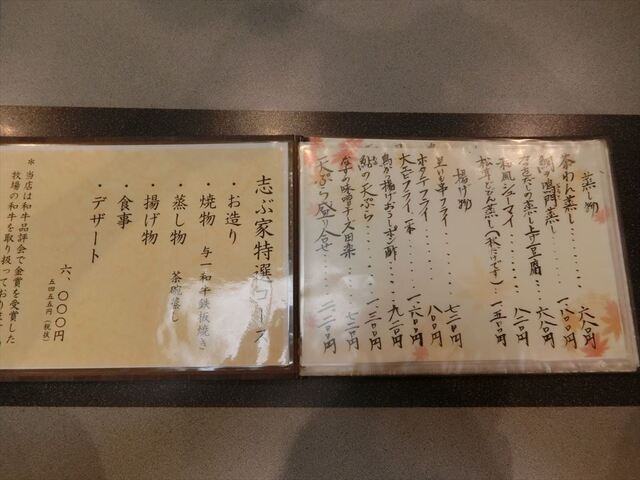 蒸し物
茶わん蒸し・・・・・・六八〇円
鯛の鳴門蒸し・・・・一、八〇〇円
蒸し上り豆腐・・・六八〇円
和風シューマイ・・・・・・八二〇円
松茸どびん蒸し(秋だけです)・・・一、五〇〇円
揚げ物
里いも串フライ・・・・・七二〇円
ホタテフライ・・・・・八〇〇円
大エビフライ一本・・・・一、六〇〇円
鳥から揚げおろしポン酢・・・九二〇円
鮎の天ぷら・・・・・・一、三〇〇円
なすの味噌チーズ田楽・・・七二〇円
天ぷら盛り合せ・・・・
志ぶ家特選コース
・お造り
・焼物 与一和牛鉄板焼き
・蒸し物 茶碗蒸し
・揚げ物
・食事
・デザート
六、〇〇〇円
五四五五円(税抜)
*当店は和牛品評会で金賞を受賞した
牧場の和牛を取り扱っております